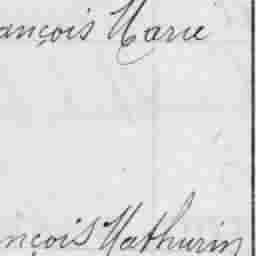 ançois Marie
nçois Mathurin